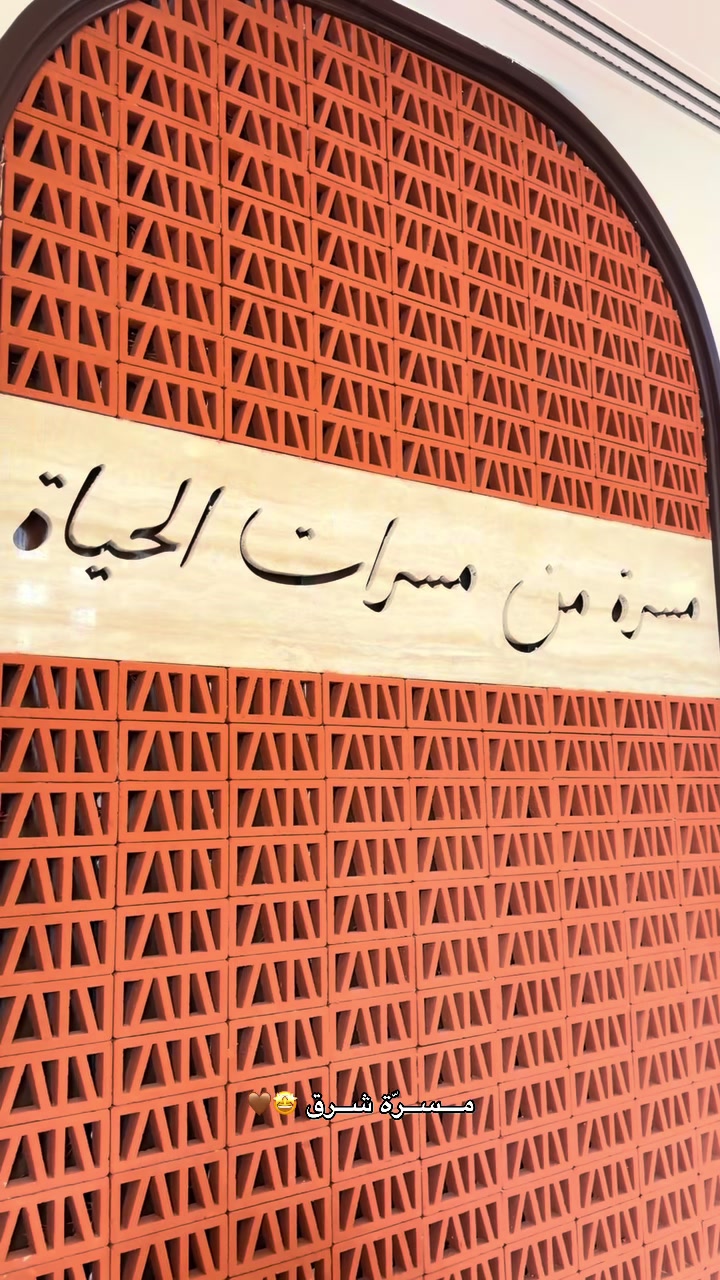 مسرة من مسرات الحياة
مـــســـرّة شـــرق 🤩🤎